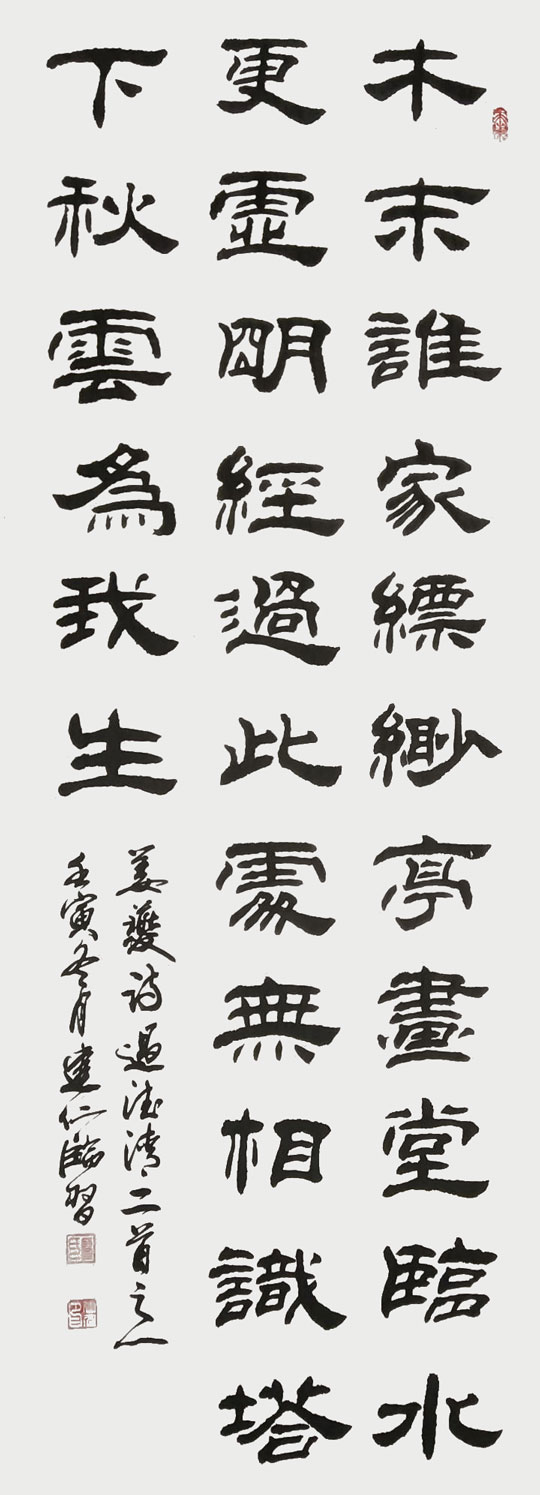 木末誰家縹緲亭畫堂臨水
更虛明經過此處無相識塔
下秋雲為我生
姜夔詩過德清二首之一
壬寅冬月建仁臨習